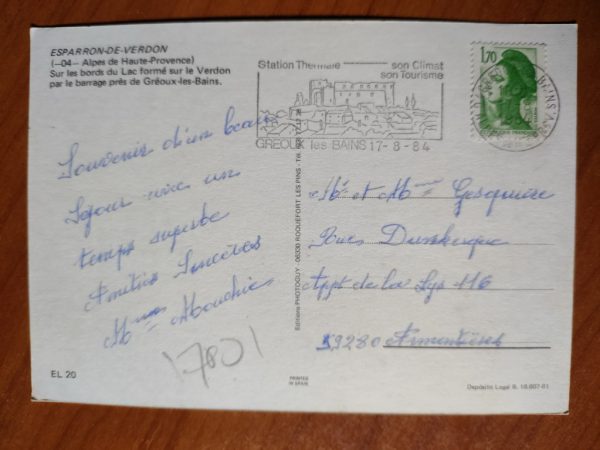 ESPARRON-DE-VERDON
(-04- Alpes de Haute-Provence)
Sur les bords du Lac formé sur le Verdon
par le barrage près de Gréoux-les-Bains.
Station Thermale son Climat
son Tourisme
GREOUX les BAINS 17-8-84
1,70
Souvenir d'un beau
Séjour avec un
temps superbe
Amitiés Sincères
Mme
Mr et Mme
Rue Dunkerque
Appt de la Lys 116
59280 Armentières
17801
Editions PHOTOGUY - 06330 ROQUEFORT LES PINS - Tél.
EL 20
PRINTED
IN SPAIN
Depósito Legal B. 18.607-81